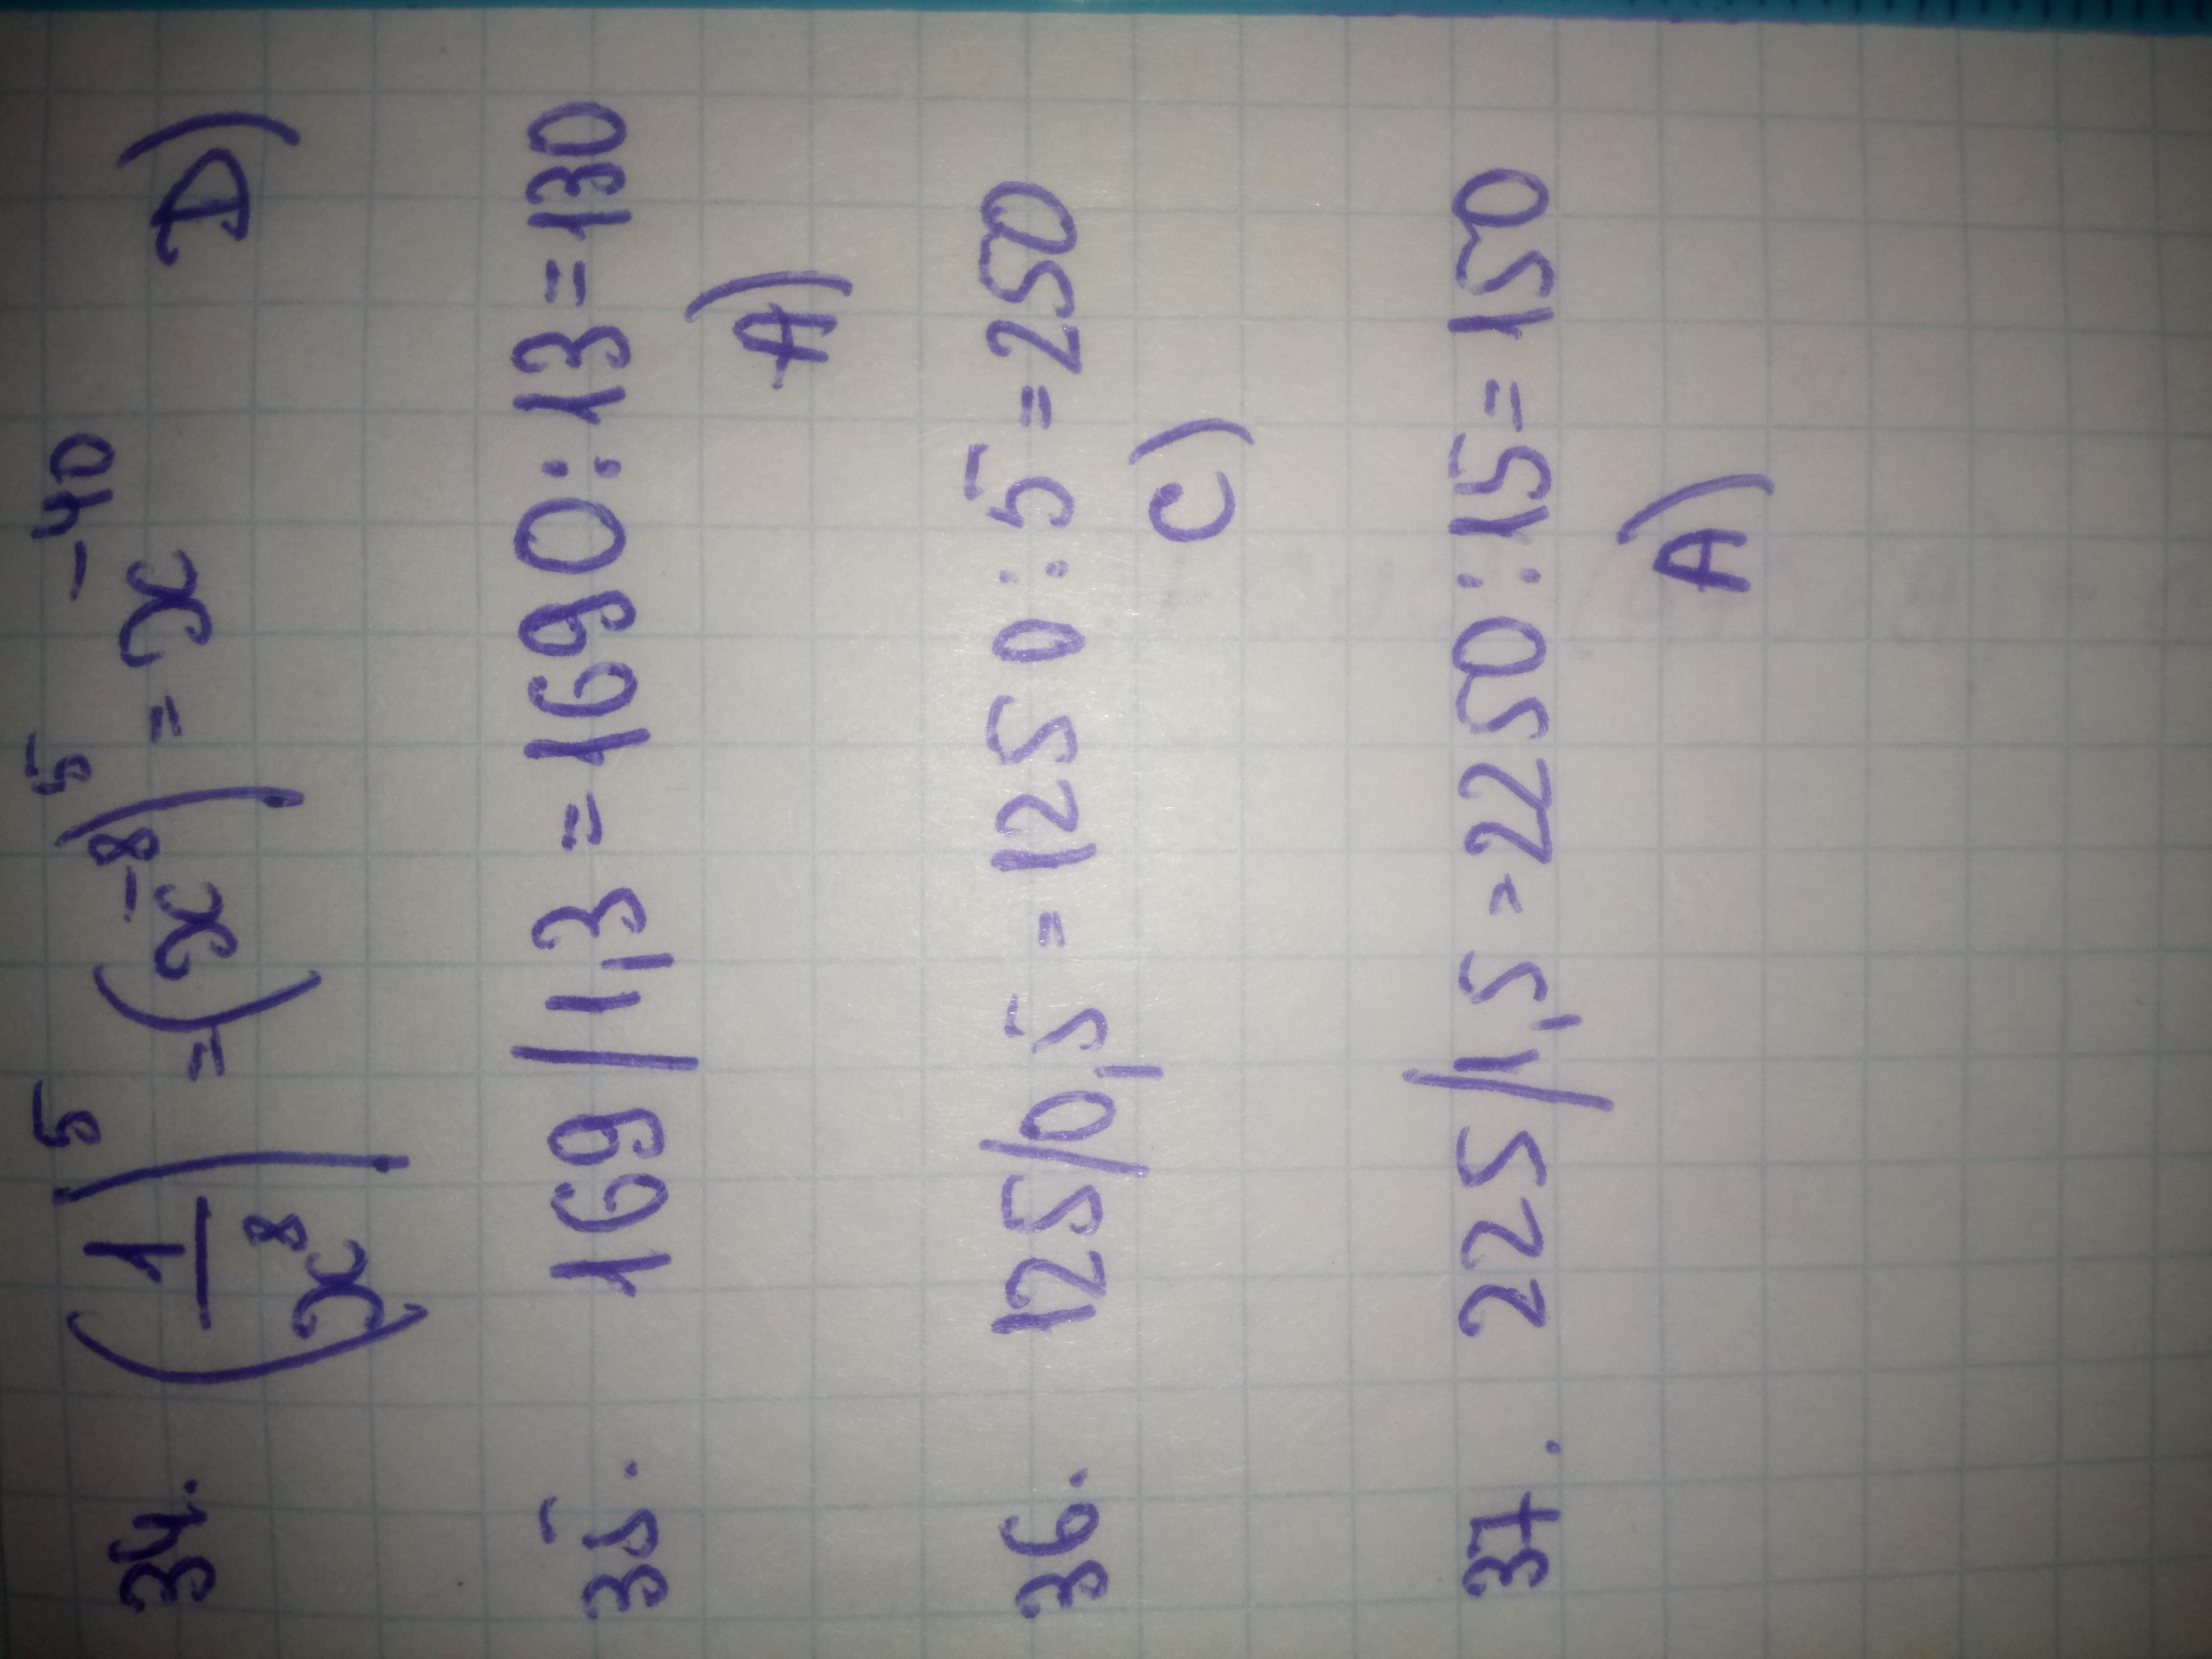 34. (1/x⁸)⁵ = (x⁻⁸)⁵ = x⁻⁴⁰ D)
35. 169/1,3 = 1690:13=130
A)
36. 125/0,5 = 1250:5=250
C)
37. 225/1,5 = 2250:15=150
A)